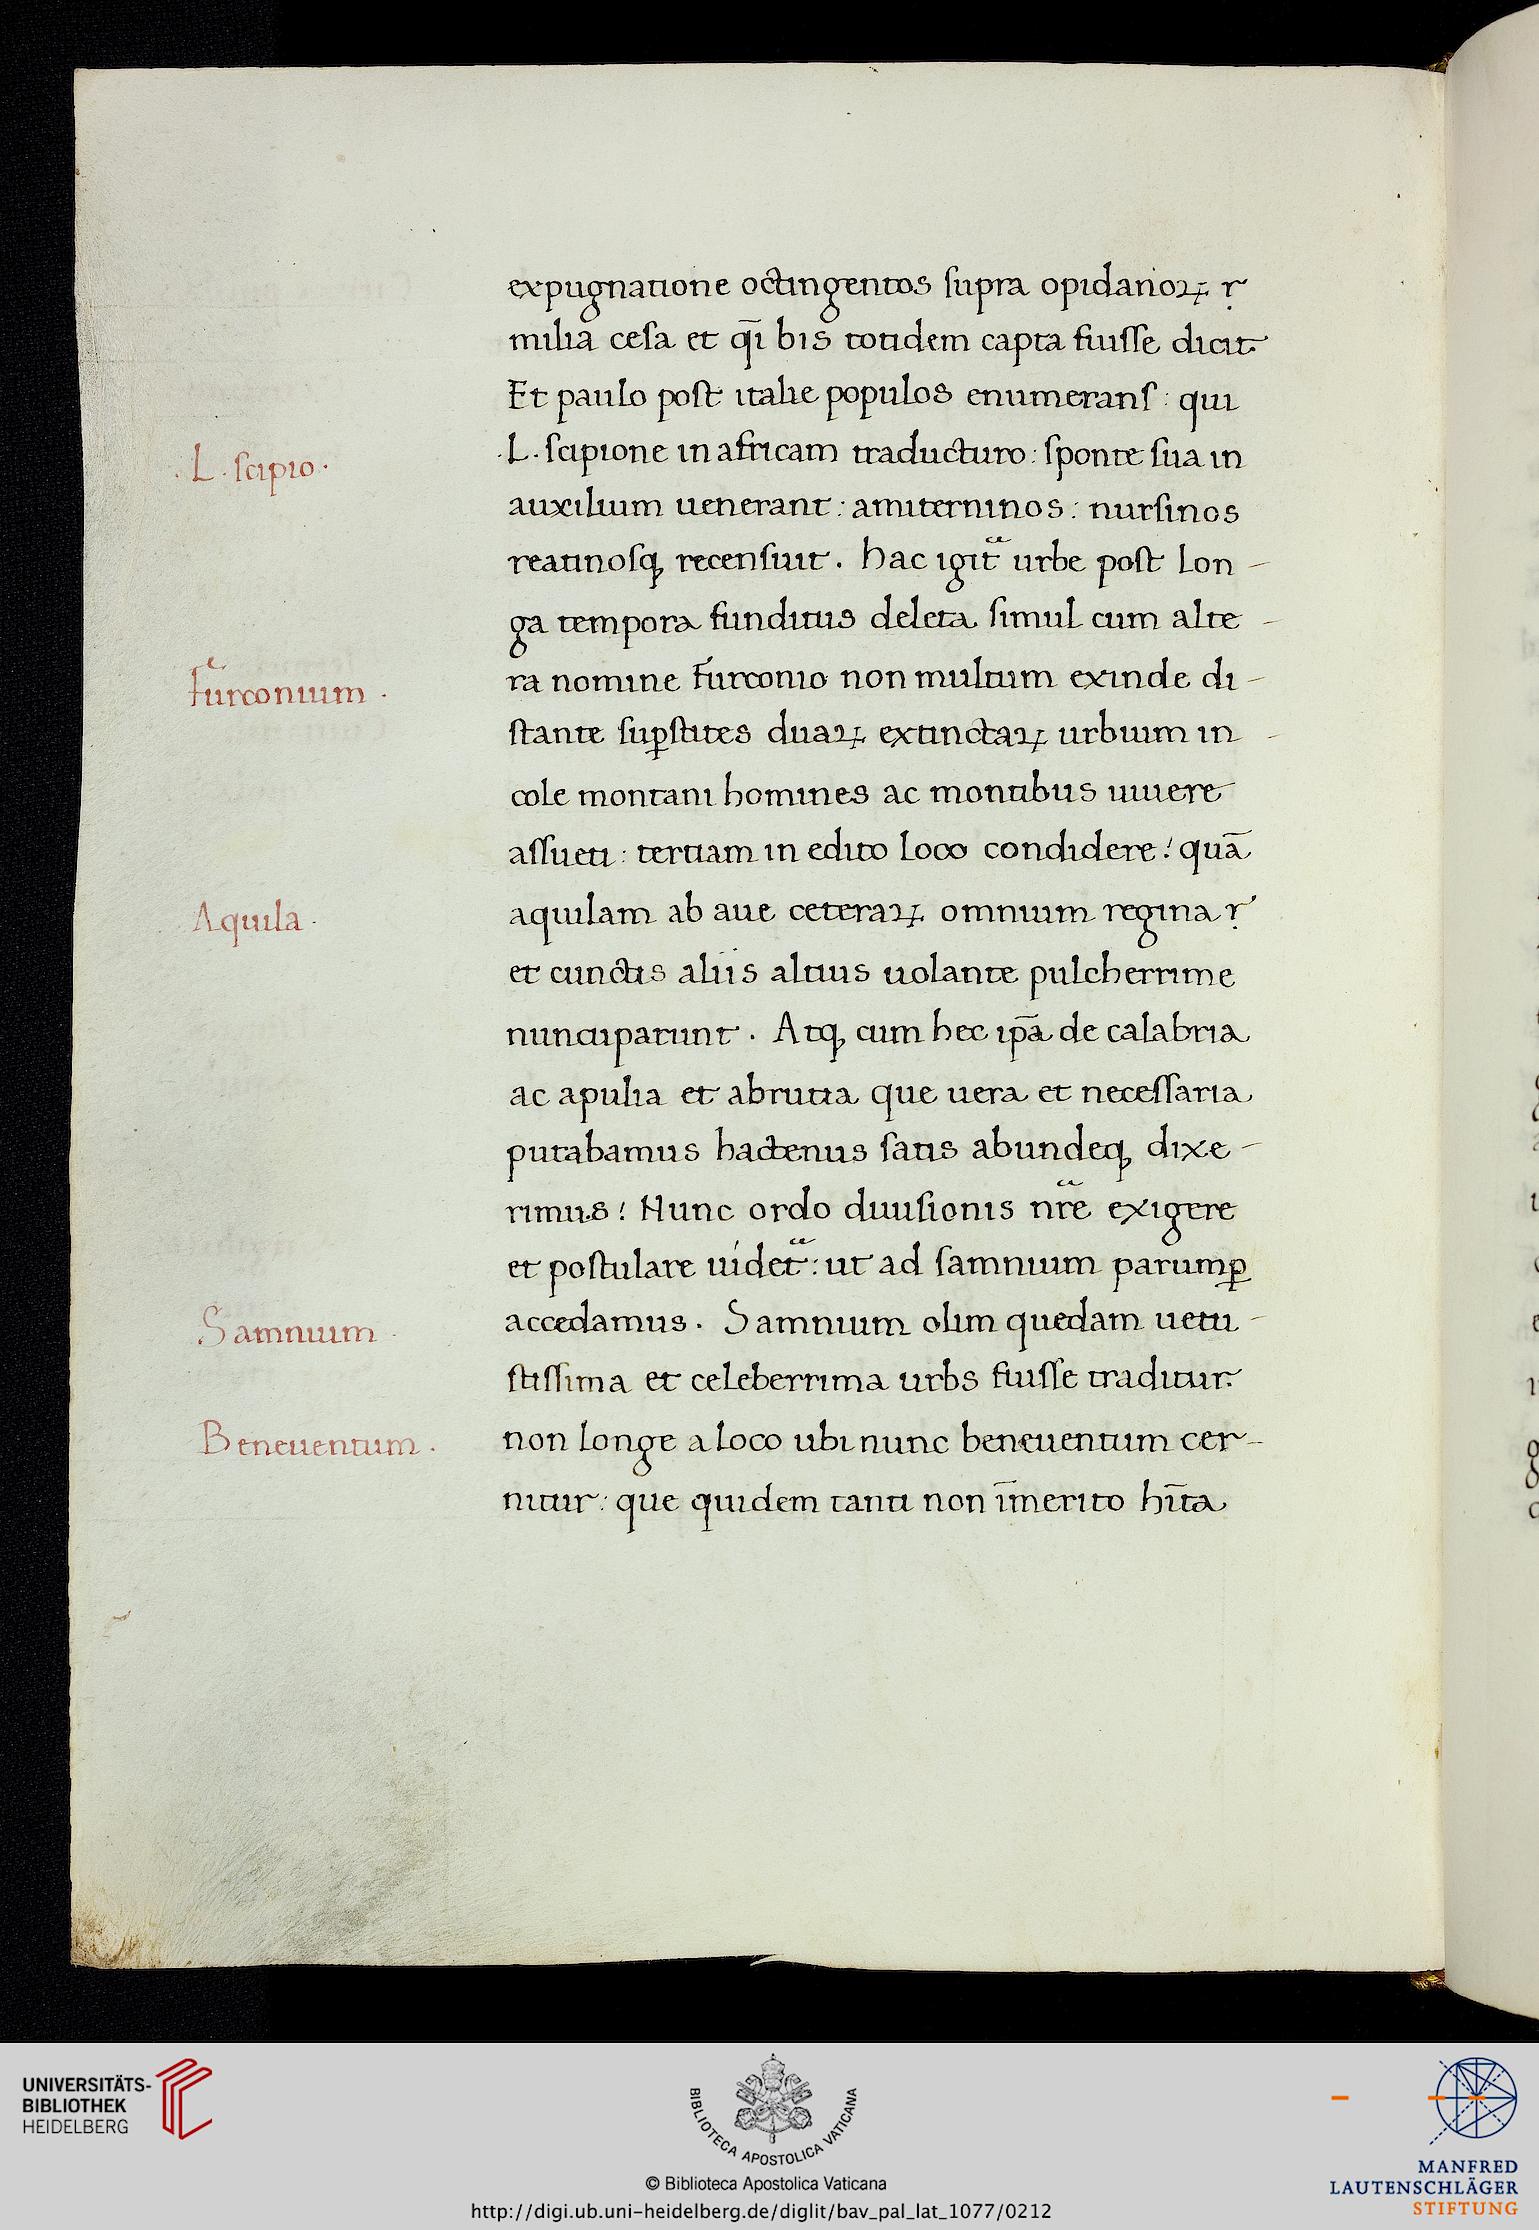 expugnatione octingentos supra opidanoꝝ ṛ
milia cesa et qͥ bis totidem capta fuisse dicit
Et paulo post italie populos enumerans : qui
.L. scipione in africam traducturo : sponte sua in
.L. scipio.
auxilium uenerant : amiterninos : nursinos
reatinosq recensuit . hac igitᷓ urbe post lon-
ga tempora funditus deleta simul cum alte-
ra nomine furconio non multum exinde di-
furconium .
stante suꝑstites duaꝝ extinctaꝝ urbium in-
cole montani homines ac montibus uiuere
assueti : tertiam in edito loco condidere ! quā
aquilam ab aue ceteraꝝ omnium regina ṛ
Aquila .
et cunctis aliis altius uolante pulcherrime
nuncuparunt . Atq cum hec ip̄a de calabria
ac apulia et abrutia que uera et necessaria
putabamus hactenus satis abundeq dixe-
rimus ! Nunc ordo diuisionis nrᷓe exigere
et postulare uidetᷓ : ut ad samnium parumꝑ
accedamus . Samnium olim quedam uetu-
Samnium .
stissima et celeberrima urbs fuisse traditur.
non longe a loco ubi nunc beneuentum cer-
Beneuentum .
nitur : que quidem tanti non īmerito hīta
UNIVERSITÄTS-
BIBLIOTHEK
HEIDELBERG
BIBLIOTECA APOSTOLICA VATICANA
© Biblioteca Apostolica Vaticana
http://digi.ub.uni-heidelberg.de/diglit/bav_pal_lat_1077/0212
MANFRED
LAUTENSCHLÄGER
STIFTUNG